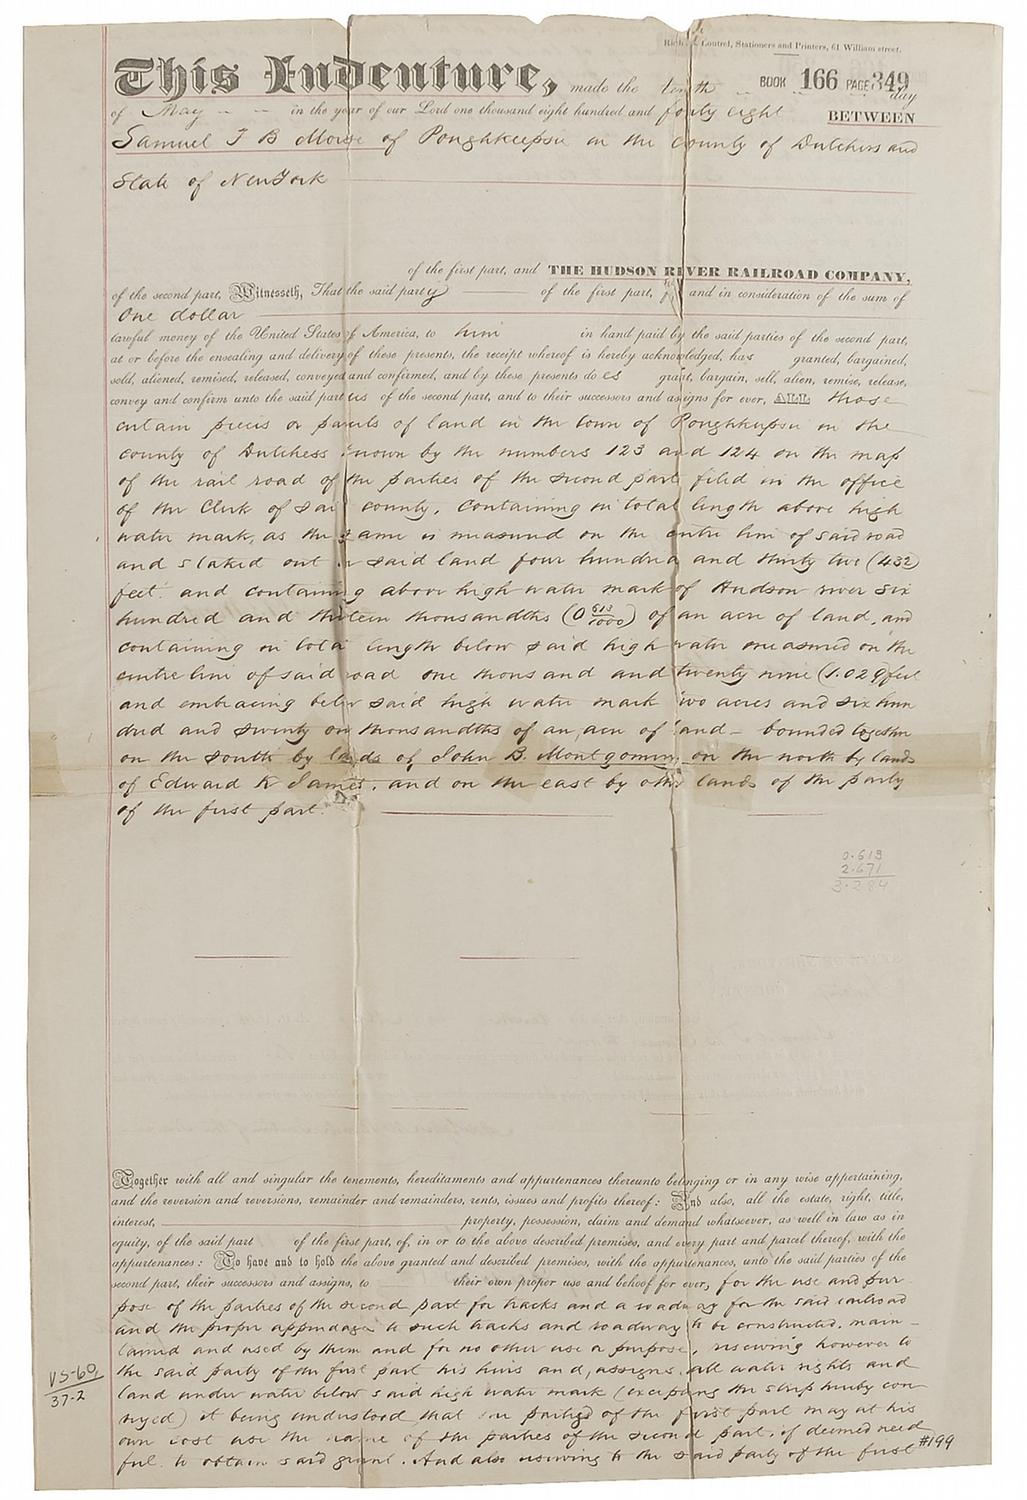 Rich & Loutrel, Stationers and Printers, 61 William street.
This Indenture, made the tenth BOOK 166 PAGE 349 day
of May in the year of our Lord one thousand eight hundred and forty eight BETWEEN
Samuel F B Morse of Poughkeepsie in the County of Dutchess and
State of New York
of the first part, and THE HUDSON RIVER RAILROAD COMPANY,
of the second part, Witnesseth, That the said party of the first part, for and in consideration of the sum of
One dollar
lawful money of the United States of America, to him in hand paid by the said parties of the second part,
at or before the ensealing and delivery of these presents, the receipt whereof is hereby acknowledged, has granted, bargained,
sold, aliened, remised, released, conveyed and confirmed, and by these presents does grant, bargain, sell, alien, remise, release,
convey and confirm unto the said parties of the second part, and to their successors and assigns for ever, ALL those
certain pieces or parcels of land in the town of Poughkeepsie in the
county of Dutchess known by the numbers 123 and 124 on the map
of the rail road of the parties of the second part filed in the office
of the Clerk of said county, Containing in total length above high
water mark, as the same is measured on the centre line of said road
and staked out on said land four hundred and thirty two (432)
feet. and containing above high water mark of Hudson river six
hundred and thirteen thousandths (0 613/1000) of an acre of land, and
containing in total length below said high water measured on the
centre line of said road one thousand and twenty nine (1.029) feet
and embracing below said high water mark two acres and six hun
dred and seventy one thousandths of an acre of land - bounded together
on the south by lands of John B. Montgomery on the north by lands
of Edward K James, and on the east by other lands of the party
of the first part.
0.613
2.671
3.284
Together with all and singular the tenements, hereditaments and appurtenances thereunto belonging or in any wise appertaining,
and the reversion and reversions, remainder and remainders, rents, issues and profits thereof: And also, all the estate, right, title,
interest, property, possession, claim and demand whatsoever, as well in law as in
equity, of the said part of the first part, of, in or to the above described premises, and every part and parcel thereof, with the
appurtenances: To have and to hold the above granted and described premises, with the appurtenances, unto the said parties of the
second part, their successors and assigns, to their own proper use and behoof for ever, for the use and pur
pose of the parties of the second part for tracks and a roadway for the said railroad
and the proper appendages to such tracks and roadway to be constructed, main-
tained and used by them and for no other use or purpose, reserving however to
the said party of the first part his heirs and, assigns, all water rights and
land under water below said high water mark (excepting the strip hereby con
veyed) it being understood that the parties of the first part may at his
own cost use the name of the parties of the second part, if deemed need
ful to obtain said grant. And also reserving to the said party of the first
VS-60
37-2
#199